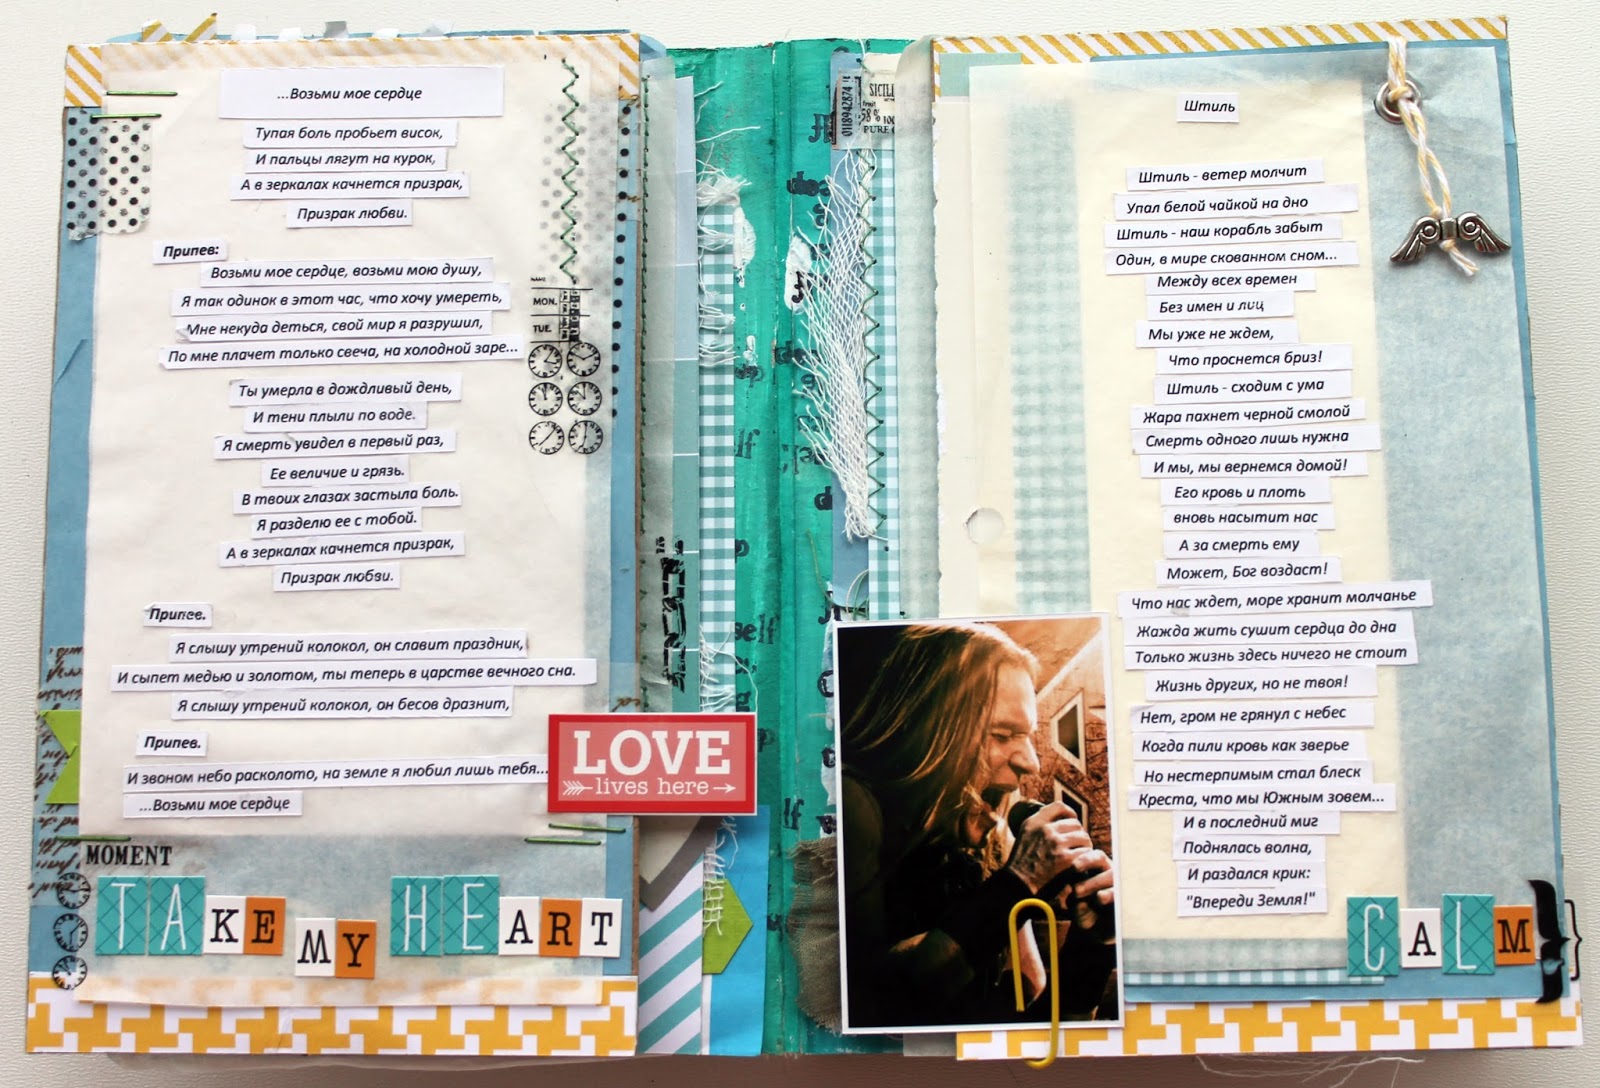 ...Возьми мое сердце
Тупая боль пробьет висок,
И пальцы лягут на курок,
А в зеркалах качнется призрак,
Призрак любви.
Припев:
Возьми мое сердце, возьми мою душу,
Я так одинок в этот час, что хочу умереть,
Мне некуда деться, свой мир я разрушил,
По мне плачет только свеча, на холодной заре...
Ты умерла в дождливый день,
И тени плыли по воде.
Я смерть увидел в первый раз,
Ее величие и грязь.
В твоих глазах застыла боль.
Я разделю ее с тобой.
А в зеркалах качнется призрак,
Призрак любви.
Припев.
Я слышу утренний колокол, он славит праздник,
И сыпет медью и золотом, ты теперь в царстве вечного сна.
Я слышу утрений колокол, он бесов дразнит,
Припев.
И звоном небо расколото, на земле я любил лишь тебя...
...Возьми мое сердце
NAME
MON.
TUE.
MOMENT
TAKE MY HEART
LOVE
lives here
0118942874
SICIL
58% 100
PURE
Штиль
Штиль - ветер молчит
Упал белой чайкой на дно
Штиль - наш корабль забыт
Один, в мире скованном сном...
Между всех времен
Без имен и лиц
Мы уже не ждем,
Что проснется бриз!
Штиль - сходим с ума
Жара пахнет черной смолой
Смерть одного лишь нужна
И мы, мы вернемся домой!
Его кровь и плоть
вновь насытит нас
А за смерть ему
Может, Бог воздаст!
Что нас ждет, море хранит молчанье
Жажда жить сушит сердца до дна
Только жизнь здесь ничего не стоит
Жизнь других, но не твоя!
Нет, гром не грянул с небес
Когда пили кровь как зверье
Но нестерпимым стал блеск
Креста, что мы Южным зовем...
И в последний миг
Поднялась волна,
И раздался крик:
"Впереди Земля!"
CALM